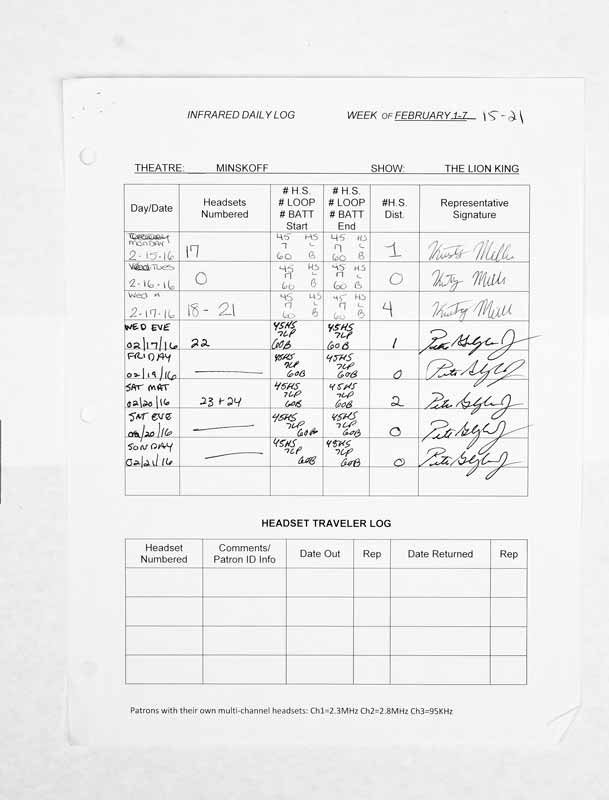 INFRARED DAILY LOG WEEK OF FEBRUARY 1-7 15-21
THEATRE: MINSKOFF SHOW: THE LION KING
Day/Date Headsets Numbered # H.S. # LOOP # BATT Start # H.S. # LOOP # BATT End #H.S. Dist. Representative Signature
MONDAY 2-15-16 17 45 HS 7 L 60 B 45 HS 7 L 60 B 1
TUES 2-16-16 0 45 HS 7 L 60 B 45 HS 7 L 60 B 0
Wed M 2-17-16 18-21 45 HS 7 L 60 B 45 HS 7 L 60 B 4
WED EVE 02/17/16 22 45HS 7LP 60B 45HS 7LP 60B 1
FRIDAY 02/19/16 45HS 7LP 60B 45HS 7LP 60B 0
SAT MAT 02/20/16 23+24 45HS 7LP 60B 45HS 7LP 60B 2
SAT EVE 02/20/16 45HS 7LP 60B 45HS 7LP 60B 0
SUNDAY 02/21/16 45HS 7LP 60B 45HS 7LP 60B 0
HEADSET TRAVELER LOG
Headset Numbered Comments/ Patron ID Info Date Out Rep Date Returned Rep
Patrons with their own multi-channel headsets: Ch1=2.3MHz Ch2=2.8MHz Ch3=95KHz